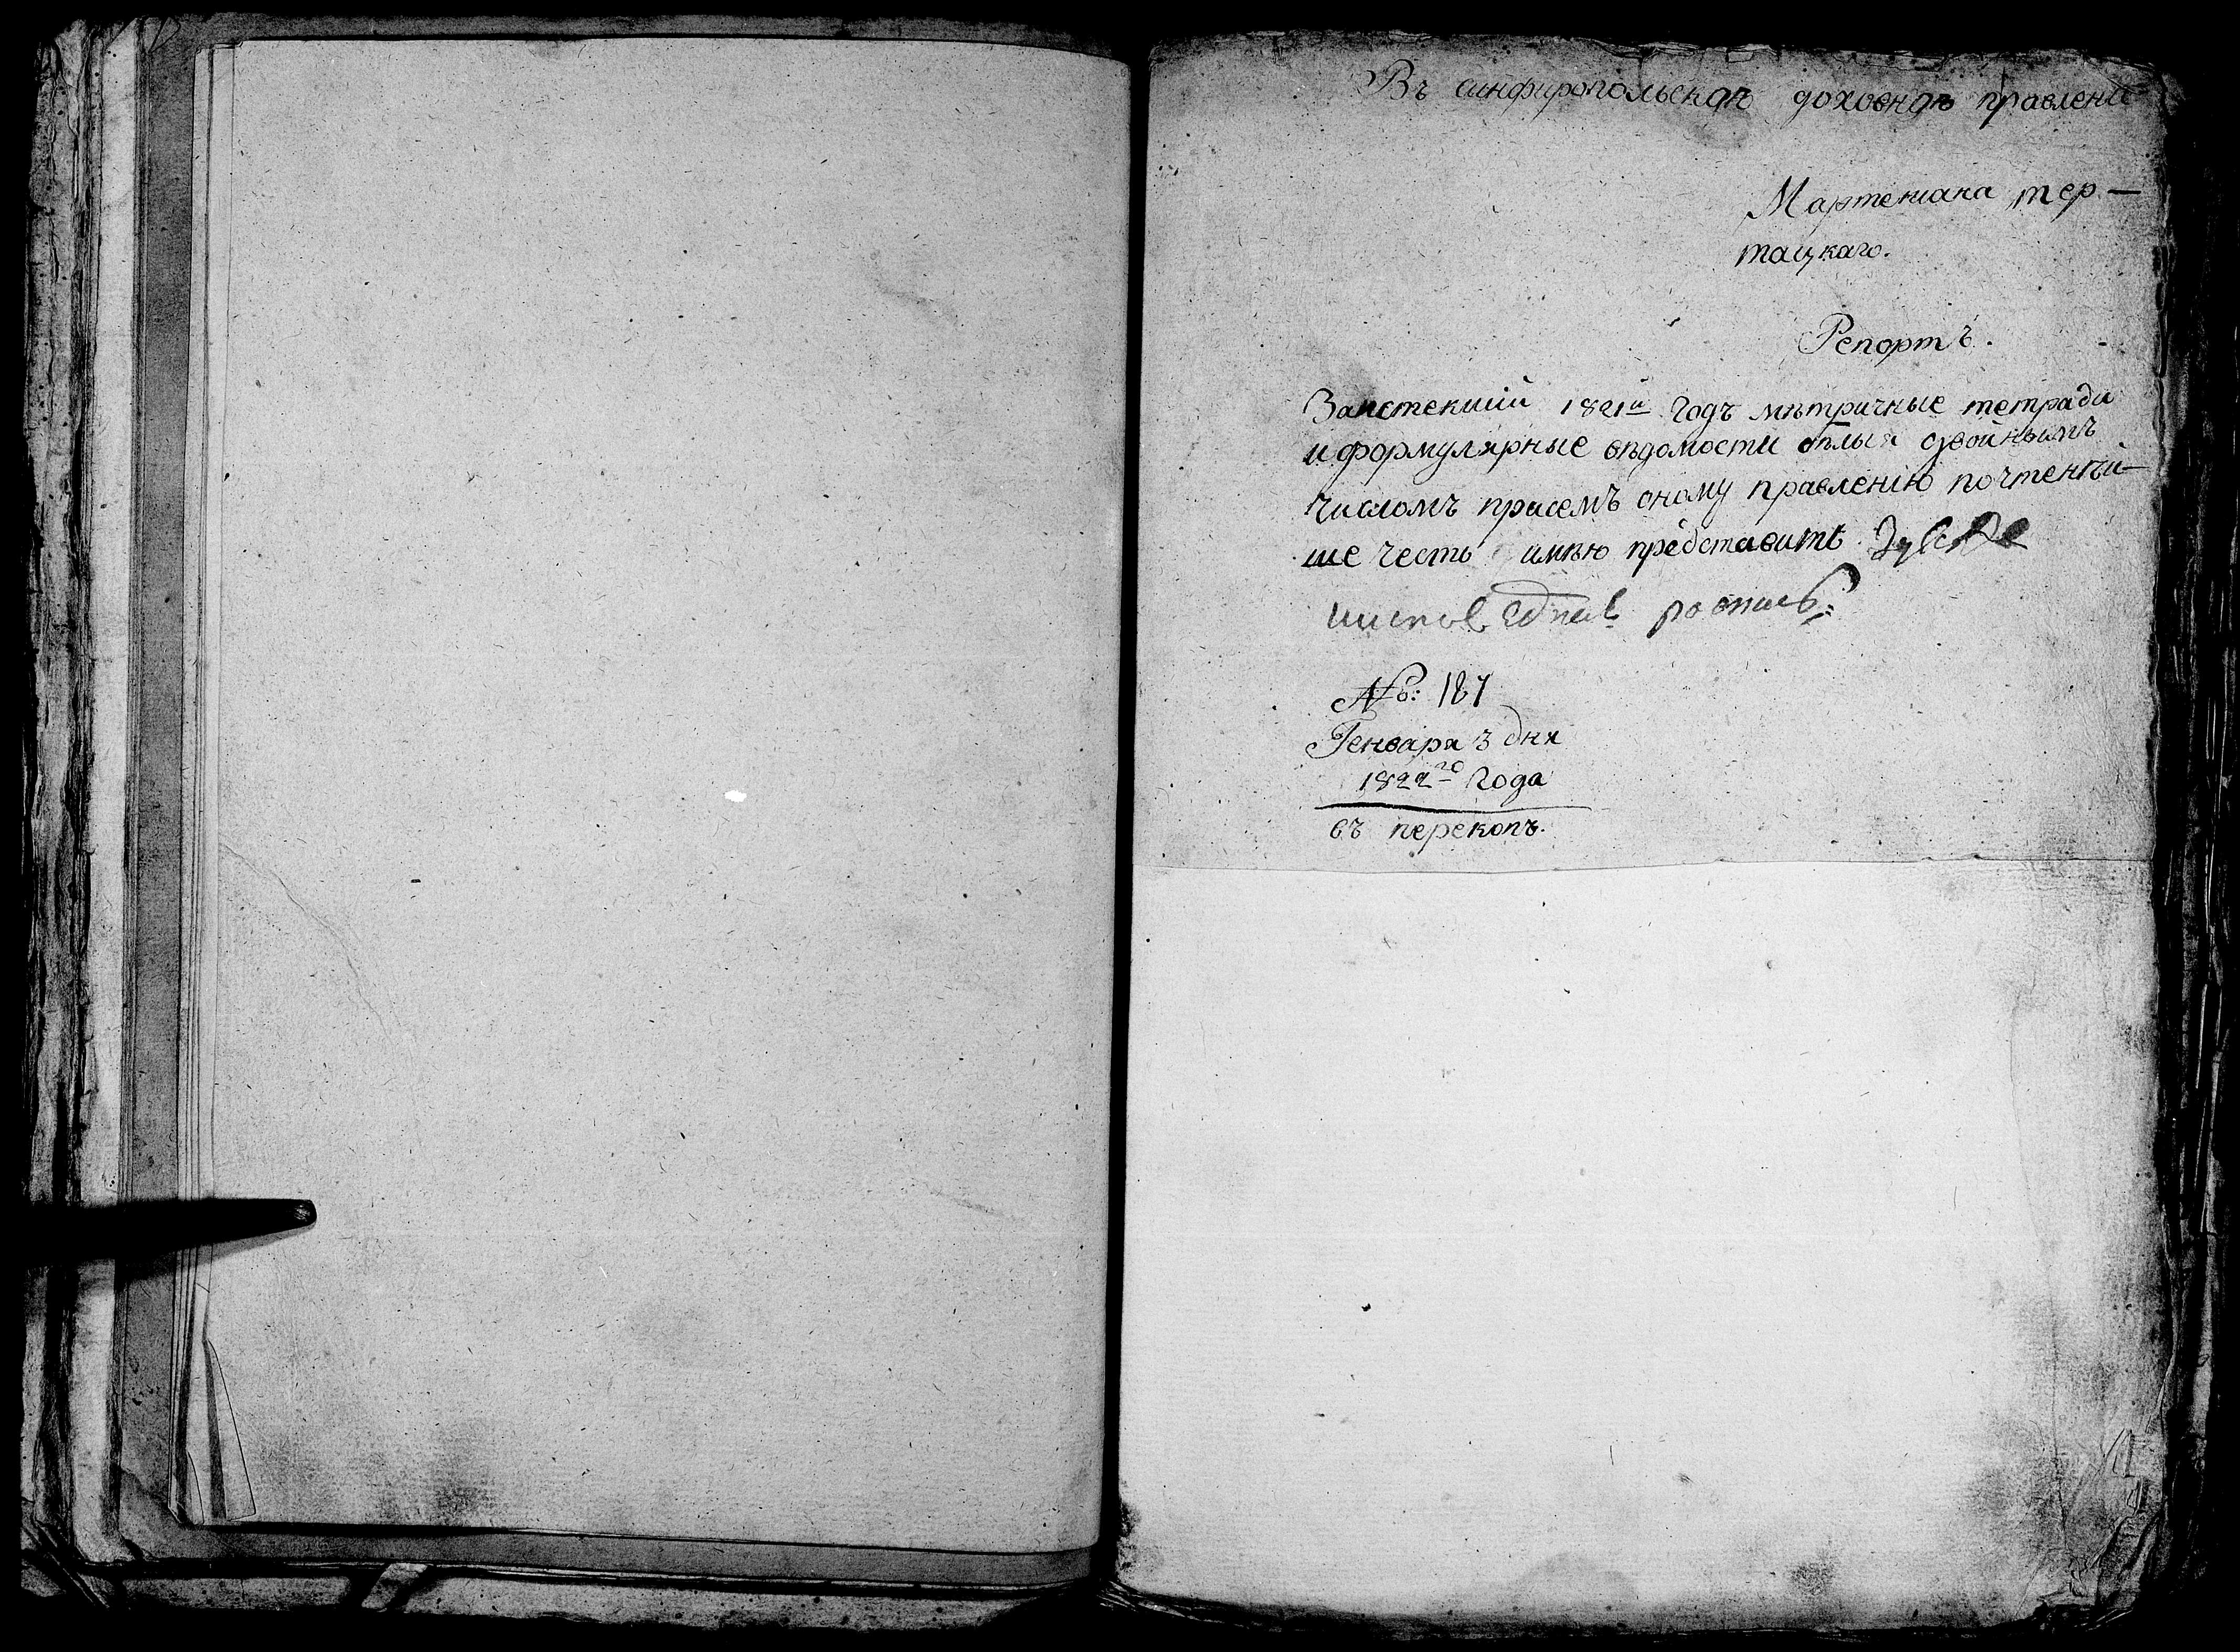 Въ синфиропольскдѣ дохвендѣ правлени
Мартениана тер-
тацкаго.
Репортъ.
Заистекший 1821й годъ мѣтричные тетради
и формулярные вѣдомости бѣлыя двойнымъ
числомъ присемъ оному правлению почтенѣй-
ше честь имѣю представить
роспись
№: 187
Генваря 3 дня
1822го года
въ перекопѣ.